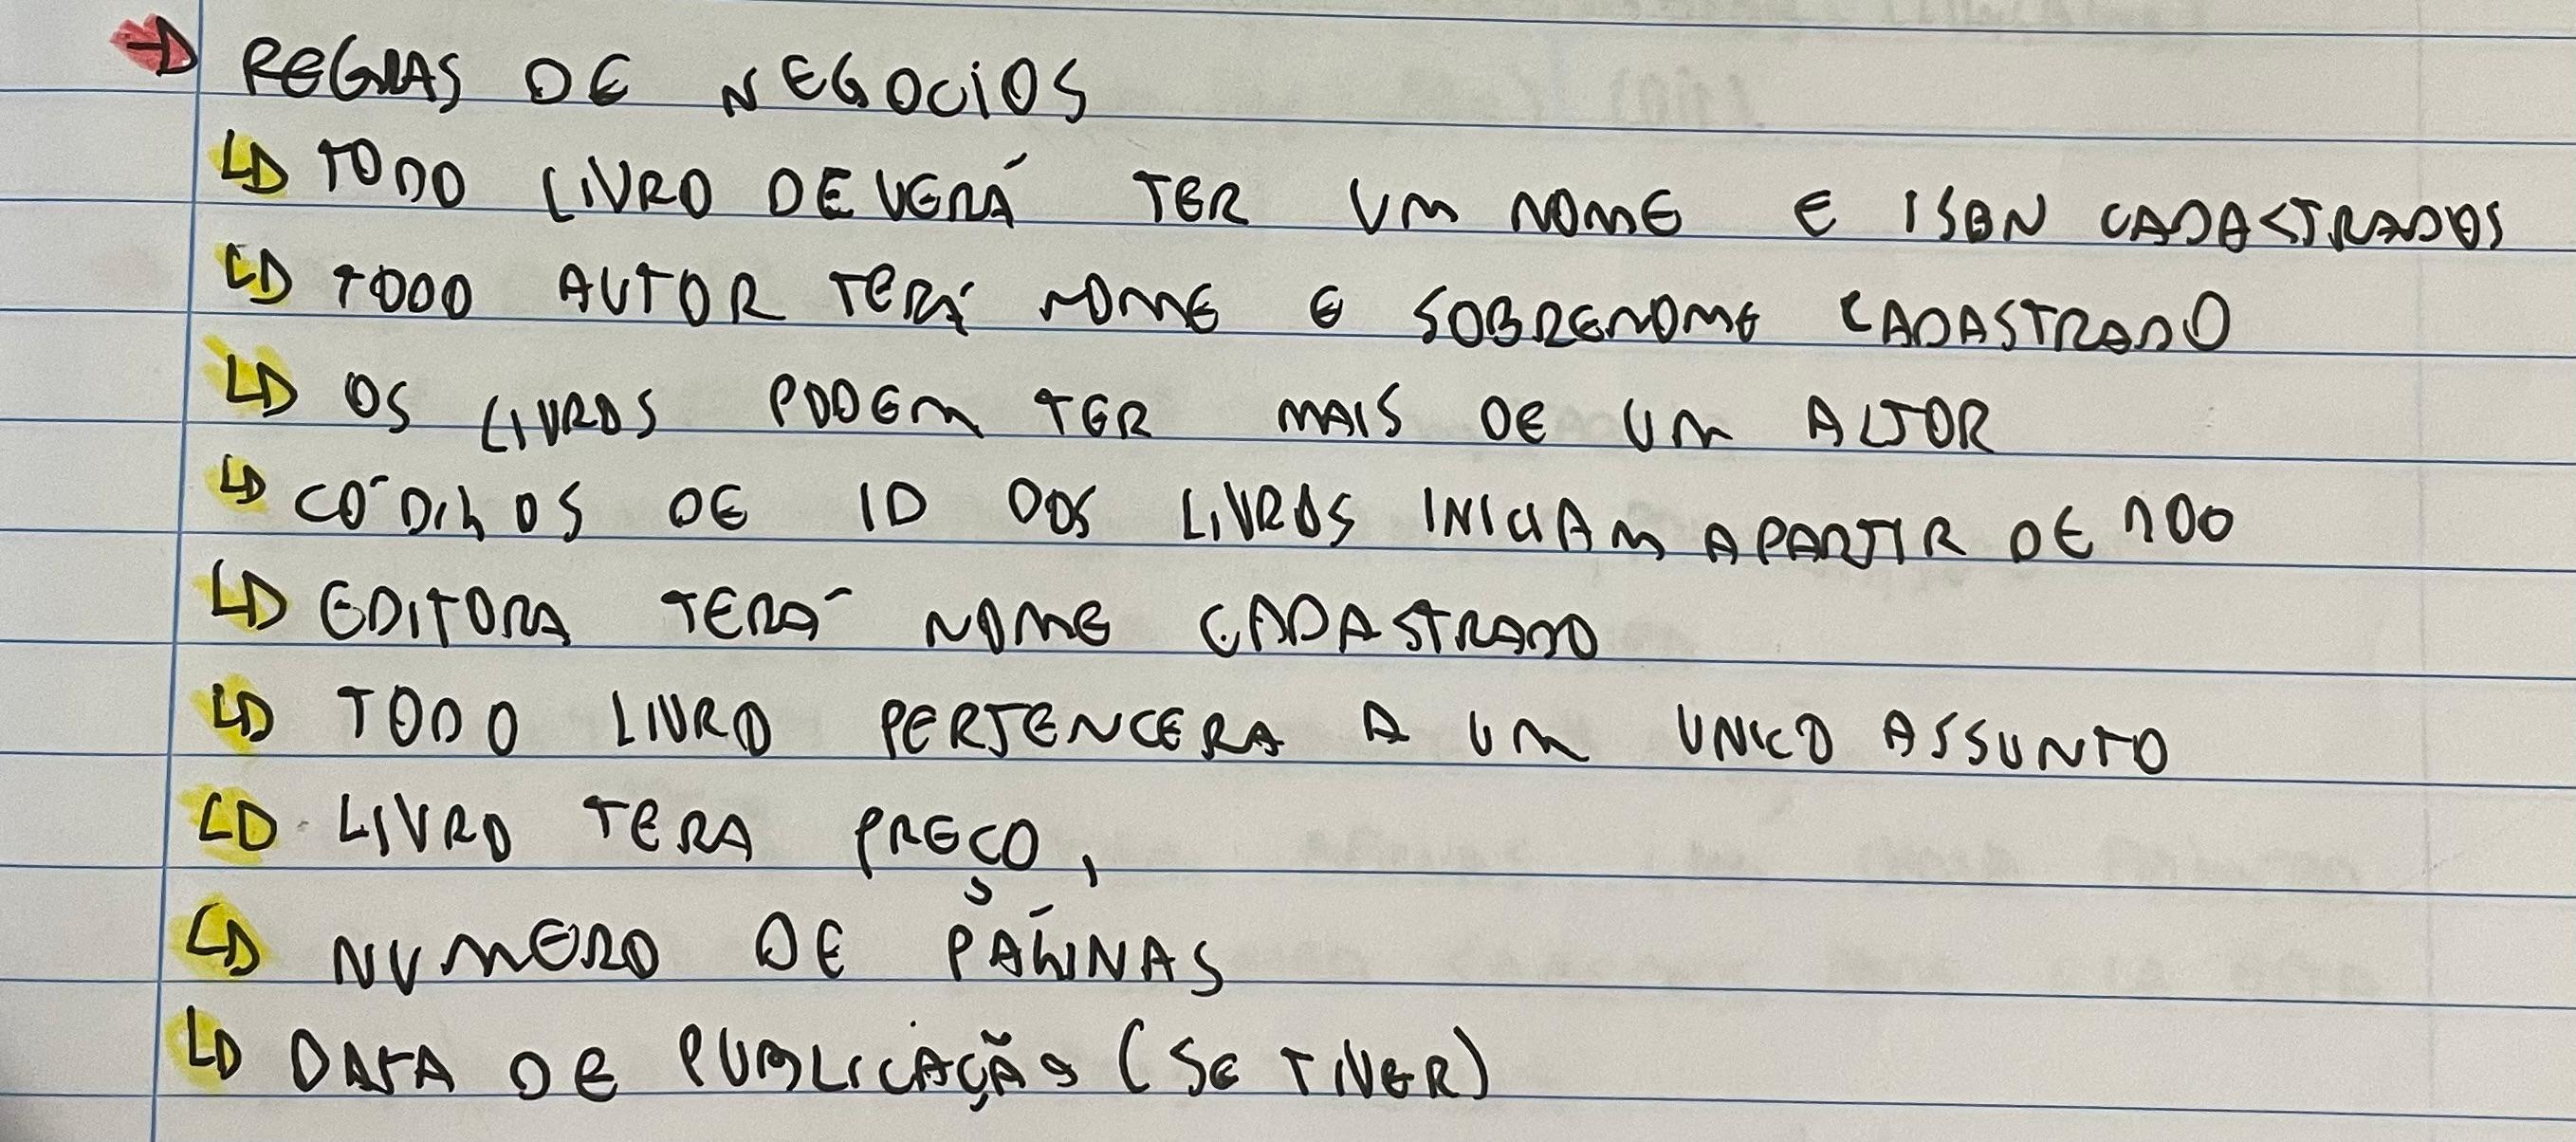 → REGRAS DE NEGOCIOS
↳ TODO LIVRO DEVERÁ TER UM NOME E ISBN CADASTRADOS
↳ TODO AUTOR TERÁ NOME E SOBRENOME CADASTRADO
↳ OS LIVROS PODEM TER MAIS DE UM AUTOR
↳ CÓDIGOS DE ID DOS LIVROS INICIAM APARTIR DE 100
↳ EDITORA TERÁ NOME CADASTRADO
↳ TODO LIVRO PERTENCERA A UM UNICO ASSUNTO
↳ LIVRO TERA PREÇO,
↳ NUMERO DE PÁGINAS
↳ DATA DE PUBLICAÇÃO (SE TIVER)